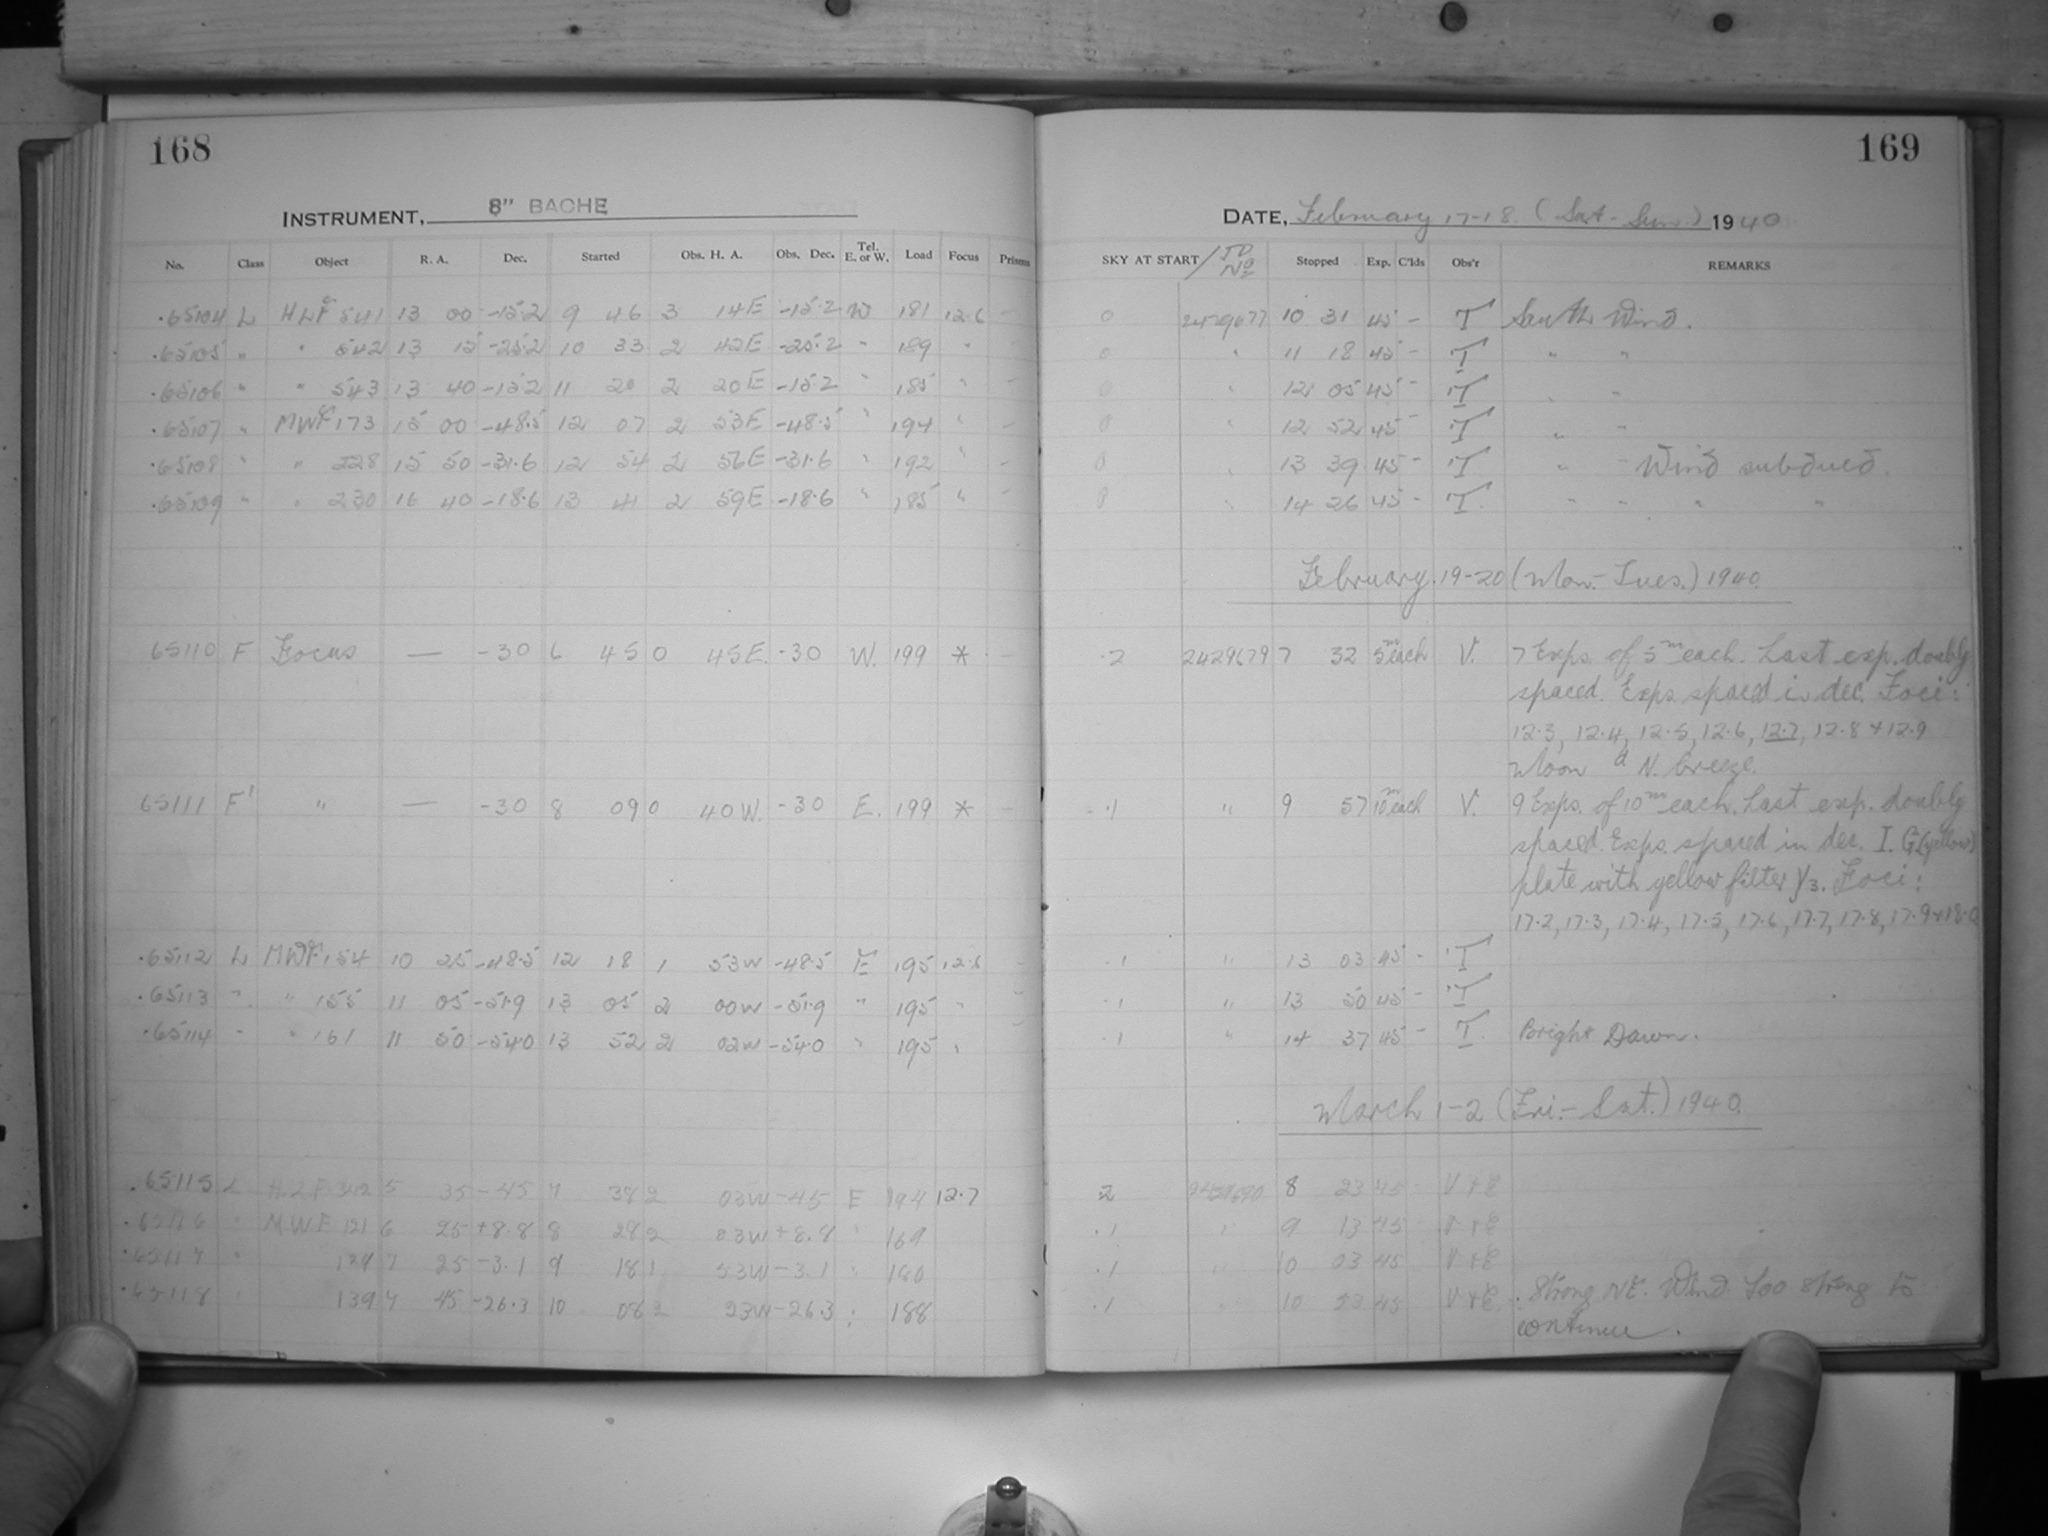 168
INSTRUMENT, 8" BACHE
No. Class Object R. A. Dec. Started Obs. H. A. Obs. Dec. Tel. E. or W. Load Focus Prisms
.65104 L HLF 541 13 00 -15.2 9 46 3 14E -15.2 W 181 12.6 -
.65105 " " 542 13 15 -25.2 10 33 2 42E -25.2 " 189 " -
.65106 " " 543 13 40 -15.2 11 20 2 20E -15.2 " 185 " -
.65107 " MWF 173 15 00 -48.5 12 07 2 53E -48.5 " 194 " -
.65108 " " 228 15 50 -31.6 12 54 2 56E -31.6 " 192 " -
.65109 " " 230 16 40 -18.6 13 41 2 59E -18.6 " 185 " -
65110 F Focus — -30 6 45 0 45E. -30 W. 199 * -
65111 F' " — -30 8 09 0 40W. -30 E. 199 * -
.65112 L MWF 154 10 25 -48.5 12 18 1 53W -48.5 E 195 12.6 -
.65113 " " 155 11 05 -51.9 13 05 2 00W -51.9 " 195 " -
.65114 " " 161 11 50 -54.0 13 52 2 02W -54.0 " 195 " -
.65115 L H.L.F. 342 5 35 -45 7 38 2 03W -45 E 194 12.7
.65116 " MWF 121 6 25 +8.8 8 28 2 03W +8.8 " 169
.65117 " 7 25 -3.1 9 18 1 53W -3.1 " 180
.65118 " 139 7 45 -26.3 10 08 2 23W -26.3 " 188
169
DATE, February 17-18 (Sat-Sun.) 1940
SKY AT START / JD No Stopped Exp. C'lds Obs'r REMARKS
0 2429677 10 31 45 - T South Wind.
0 " 11 18 45 - T " "
0 " 12 05 45 - T " "
0 " 12 52 45 - T " "
0 " 13 39 45 - T " - Wind subdued.
0 " 14 26 45 - T " " " "
February 19-20 (Mon.-Tues.) 1940.
.2 2429679 7 32 5m each V. 7 Exps. of 5m each. Last exp. doubly
spaced. Exps. spaced in dec. Foci:
12.3, 12.4, 12.5, 12.6, 12.7, 12.8 + 12.9
Moon & N. breeze.
.1 " 9 57 10m each V. 9 Exps. of 10m each. Last exp. doubly
spaced. Exps. spaced in dec. I. G (yellow)
plate with yellow filter Y3. Foci:
17.2, 17.3, 17.4, 17.5, 17.6, 17.7, 17.8, 17.9 + 18.0
.1 " 13 03 45 - T
.1 " 13 50 45 - T
.1 " 14 37 45 - T Bright Dawn.
March 1-2 (Fri.-Sat.) 1940.
.2 2429690 8 23 45 V + E
.1 " 9 13 45 V + E
.1 " 10 03 45 V + E
.1 " 10 53 45 V + E Strong NE. Wind. Too strong to
continue.